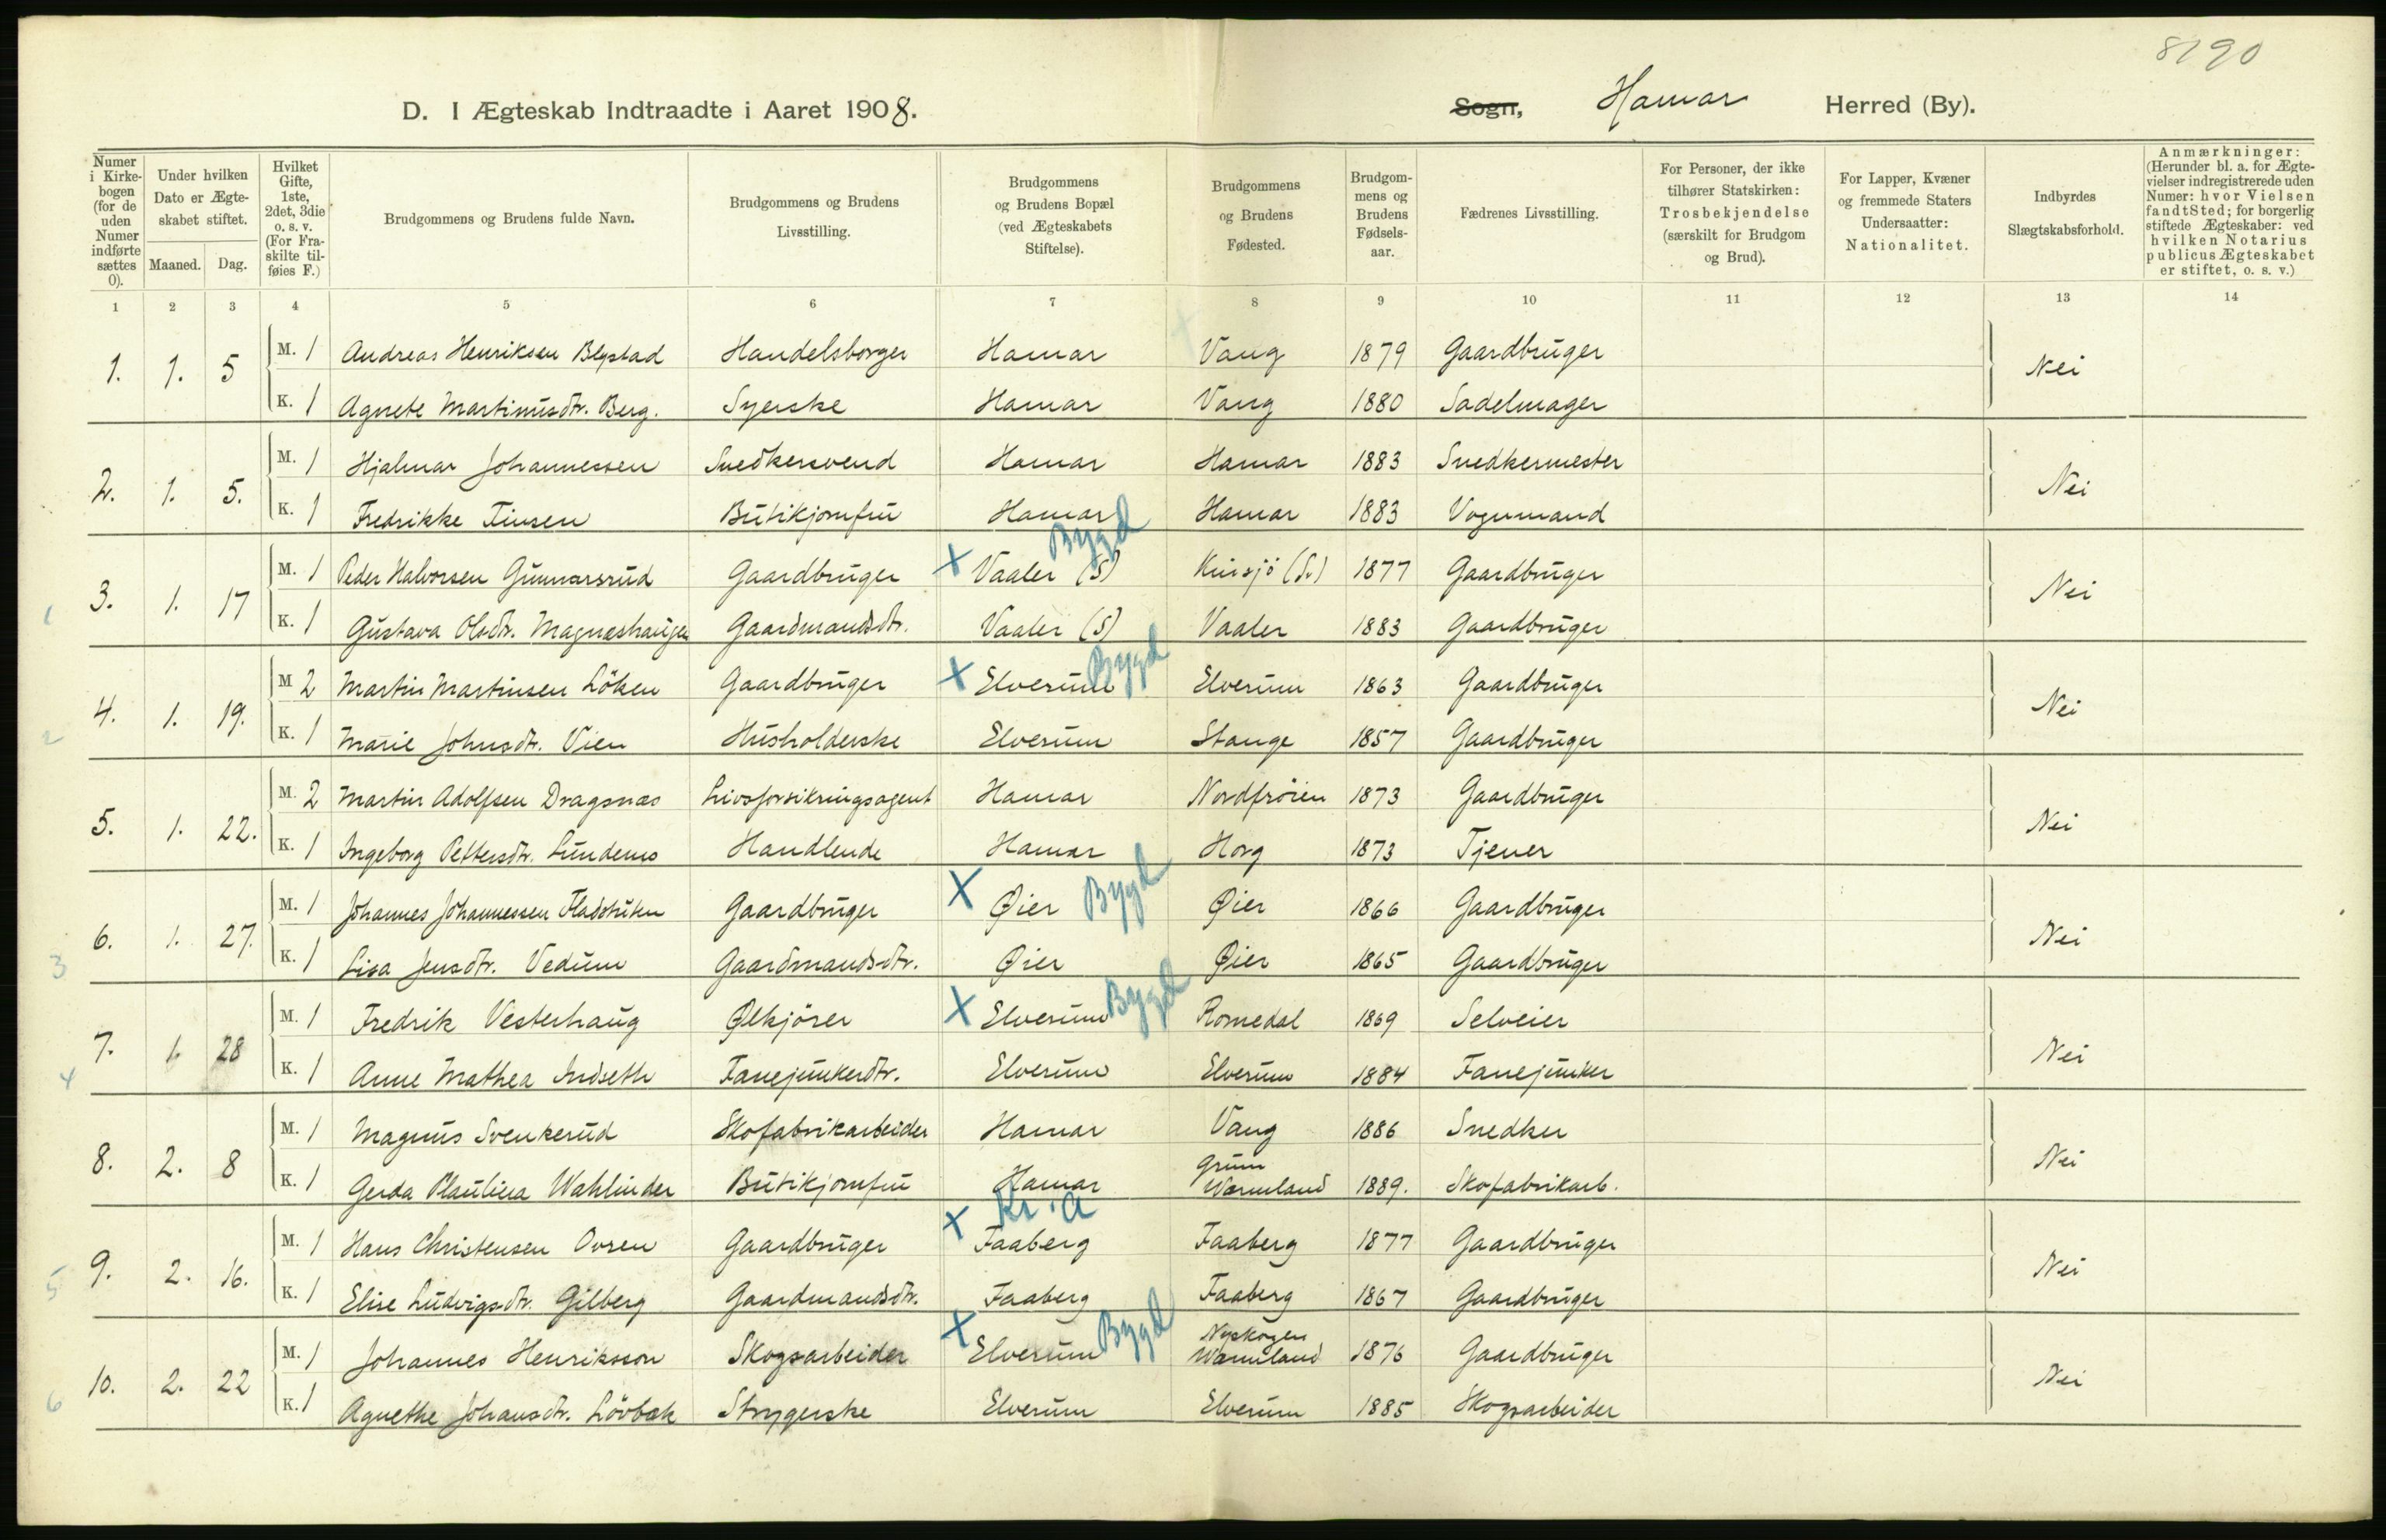 8190
D. I Ægteskab Indtraadte i Aaret 1908. Sogn, Hamar Herred (By).
Numer i Kirkebogen (for de uden Numer indførte sættes 0).
Under hvilken Dato er Ægteskabet stiftet.
Maaned. Dag.
Hvilket Gifte, 1ste, 2det, 3die o. s. v. (For Fraskilte tilføies F.)
Brudgommens og Brudens fulde Navn.
Brudgommens og Brudens Livsstilling.
Brudgommens og Brudens Bopæl (ved Ægteskabets Stiftelse).
Brudgommens og Brudens Fødested.
Brudgommens og Brudens Fødselsaar.
Fædrenes Livsstilling.
For Personer, der ikke tilhører Statskirken: Trosbekjendelse (særskilt for Brudgom og Brud).
For Lapper, Kvæner og fremmede Staters Undersaatter: Nationalitet.
Indbyrdes Slægtskabsforhold.
Anmærkninger: (Herunder bl. a. for Ægtevielser indregistrerede uden Numer: hvor Vielsen fandt Sted; for borgerlig stiftede Ægteskaber: ved hvilken Notarius publicus Ægteskabet er stiftet, o. s. v.)
1 2 3 4 5 6 7 8 9 10 11 12 13 14
1. 1. 5 M. 1 Andreas Henriksen Blystad Handelsborger Hamar Vang 1879 Gaardbruger Nei
K. 1 Agnete Martinusdtr. Berg. Syerske Hamar Vang 1880 Sadelmager
2. 1. 5. M. 1 Hjalmar Johannessen Snedkersvend Hamar Hamar 1883 Snedkermester Nei
K. 1 Fredrikke Finsen Butikjomfru Hamar Hamar 1883 Vognmand
3. 1. 17 M. 1 Peder Halvorsen Gunnarsrud Gaardbruger X Vaaler (S) Bygd (Sv.) 1877 Gaardbruger Nei
1 K. 1 Gustava Olsdtr. Magneshaugen Gaardmandsdtr. Vaaler (S) Vaaler 1883 Gaardbruger
4. 1. 19. M 2 Martin Martinsen Löken Gaardbruger X Elverum Bygd Elverum 1863 Gaardbruger Nei
2 K. 1 Marie Johnsdtr. Vien Husholderske Elverum Stange 1857 Gaardbruger
5. 1. 22. M. 2 Martin Adolfsen Dragsnæs Livsforsikringsagent Hamar Nordfröien 1873 Gaardbruger Nei
K. 1 Ingeborg Pettersdtr. Lundemo Handlende Hamar Horg 1873 Tjener
6. 1. 27. M. 1 Johannes Johannessen Gaardbruger X Øier Bygd Øier 1866 Gaardbruger Nei
3 K. 1 Lisa Jensdtr. Vedum Gaardmandsdtr. Øier Øier 1865 Gaardbruger
7. 1. 28 M. 1 Fredrik Vesterhaug Ølkjörer X Elverum Bygd Romedal 1869 Selveier Nei
4 K. 1 Anne Mathea Indseth Fanejunkerdtr. Elverum Elverum 1884 Fanejunker
8. 2. 8 M. 1 Magnus Svenkerud Skofabrikarbeider Hamar Vang 1886 Snedker Nei
K. 1 Gerda Wahlinder Butikjomfru Hamar Grum Wermland 1889. Skofabrikarb.
9. 2. 16. M. 1 Hans Christensen Ovren Gaardbruger X Kr.a Faaberg Faaberg 1877 Gaardbruger Nei
5 K. 1 Elise Ludvigsdtr. Gilberg Gaardmandsdtr. Faaberg Faaberg 1867 Gaardbruger
10. 2. 22 M. 1 Johannes Henriksson Skogsarbeider X Elverum Bygd Nyskogen Wermland 1876 Gaardbruger Nei
6 K. 1 Agnethe Johansdtr. Lövbæk Strygerske Elverum Elverum 1885 Skogsarbeider